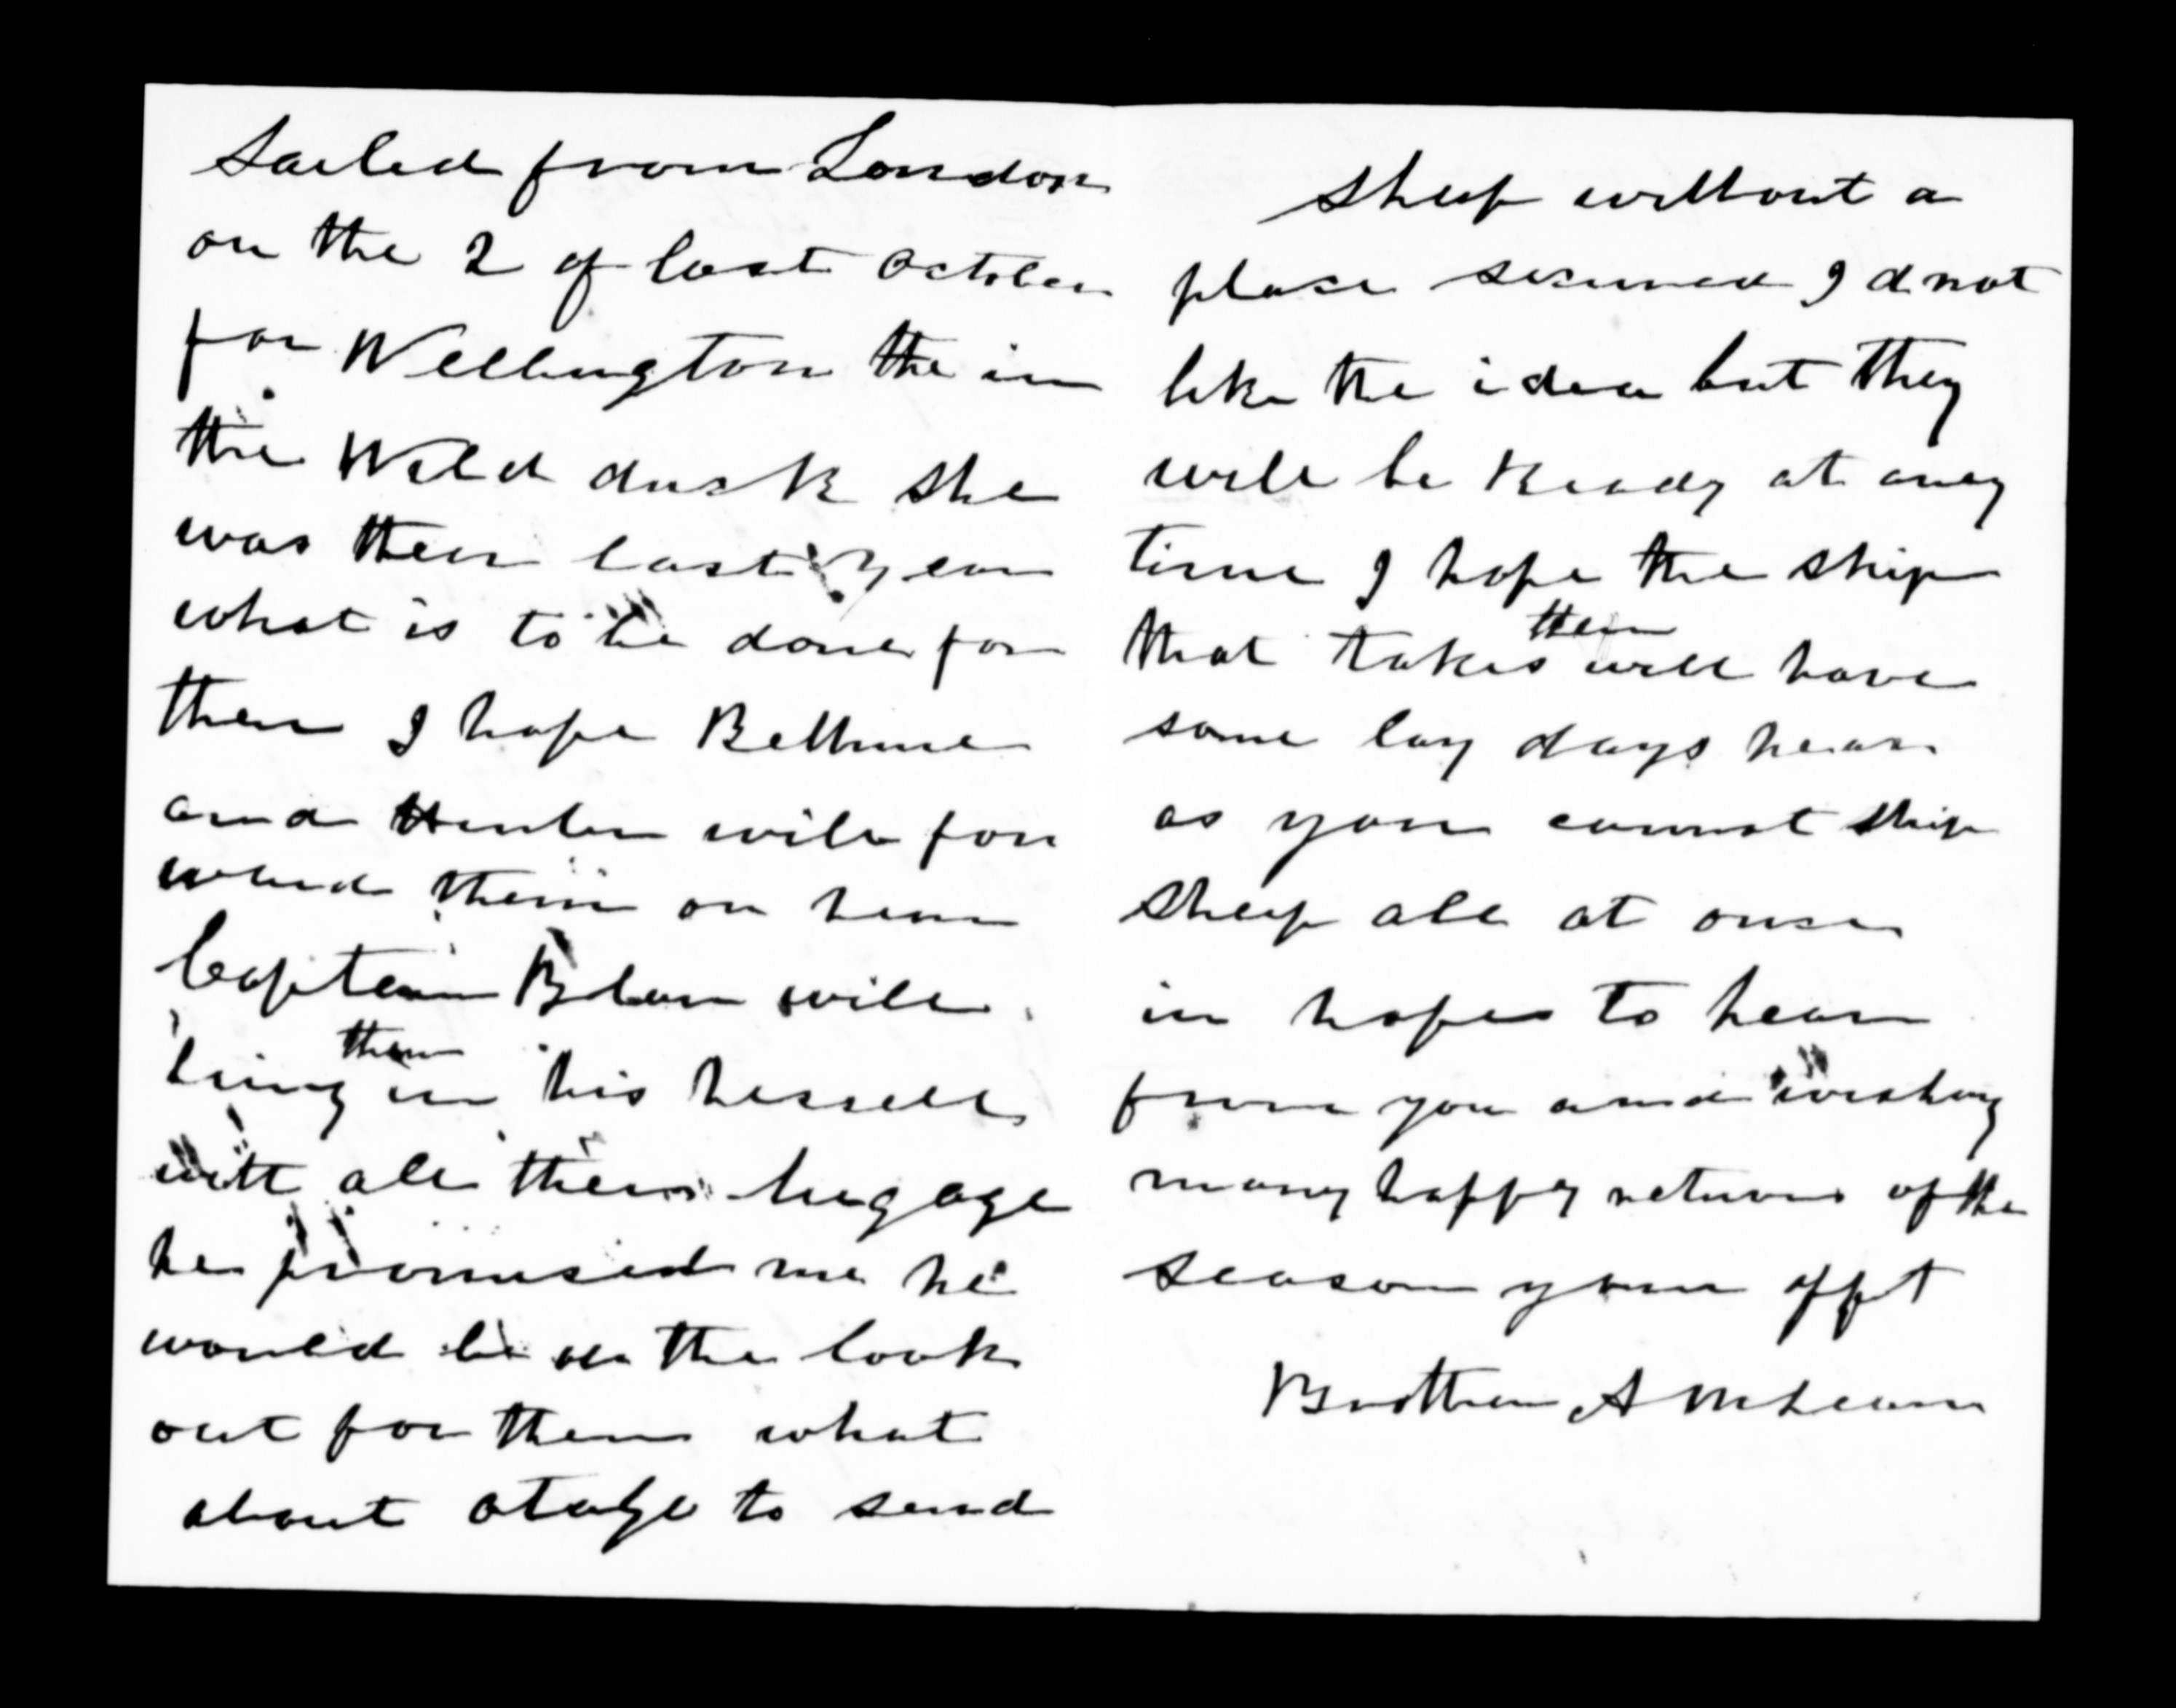 Sailed from London
on the 2 of last October
for Wellington the in
the Wild duck she
was ther last year
what is to be done for
them I hope Bethune
and Hunter will for
ward them on hear
Captain Blair will
bring them in his hessell
with all their lugage
he promised me he
would be on the look
out for them what
about otago to send
sheep without a
place secured I dnot
like the idea but they
will be Ready at aney
time I hope the ship
that takes them will have
some lay days hear
as you cannot ship
sheep all at once
in hopes to hear
from you and wishing
many happy returns of the
season your afft
Brother A McLean